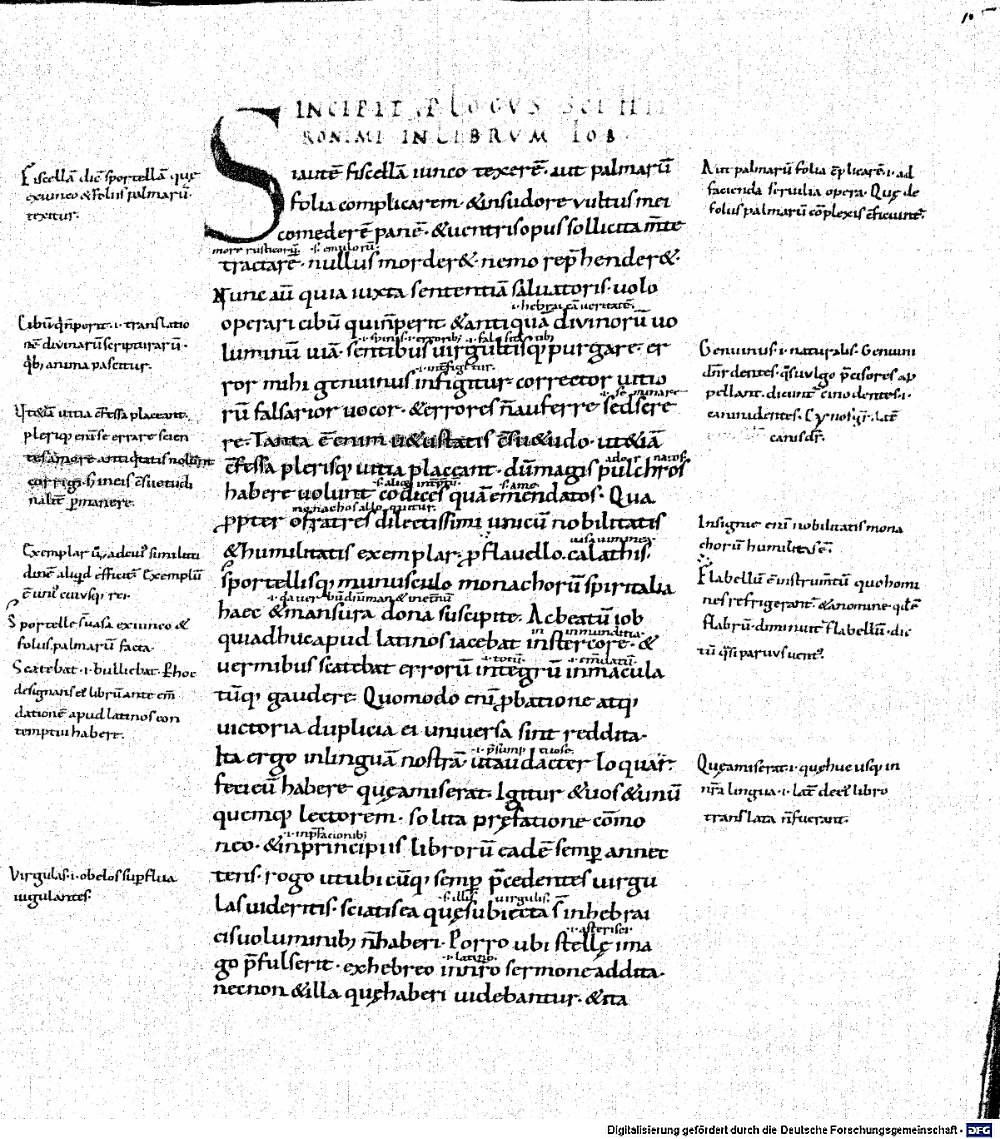 INCIPIT PLOGVS SCI HIE
RONIMI IN LIBRVM IOB
Siautē fiscellā iunco texerē· aut palmarū
folia complicarem· &insudore vultus mei
comederē panē· &uentris opus sollicita m̄te
more rusticorū· ·s· emulorū·
tractarē· nullus morder&· nemo rep̄hender&·
Nunc aū quia iuxta sententiā saluatoris· uolo
·i· hebraicā veritatē·
operari cibū quin̄perit· &antiquā diuinorū uo
·i· spinis· ·i· erroribꝫ ·i· falsitatibꝫ
luminū uiā· sentibus uirgultisqꝫ purgare· er
·i· infigetur·
ror mihi genuinus infigitur· corrector uitio
·i· seminare
rū falsarior uocor· &errores n̄auferre· sedsere
re· Tanta ē enim u&ustatis c̄su&udo· ut&iā
c̄fessa plerisqꝫ uitia placeant· dū magis pulchros
habere uolunt codices quā emendatos· Qua
monachos alloquitur·
ꝓpter o fratres dilectissimi unicū nobilitatis
uasa uiminea·
&humilitatis exemplar· ꝓ flauello· calathis·
sportellisqꝫ munusculo monachorū spiritalia
haec &mansura dona suscipite· Acbeatū iob
in inmunditia·
quiadhuc apud latinos iacebat instercore· &
·i· totū· ·i· em̄datū·
uermibus scatebat errorū integrū inmacula
tūqꝫ gaudere· Quomodo eni ꝓbatione atqꝫ
uictoria duplicia ei uniuersa sint reddita·
·i· p̄sumptuose·
Ita ergo inlinguā nostrā utaudacter loquar·
fecieū habere quęamiserat· Igitur &uos &unū
quemqꝫ lectorem· solita pręfatione cōmo
neo· &inprincipiis librorū eadē semꝑ annec
tens· rogo utubicūqꝫ semꝑ p̄cedentes uirgu
·s· illis· uirgulis·
las uideritis· sciatis ea quęsubiecta s̄ inhebrai
·i· asterisci
cis uoluminibꝫ n̄haberi· Porro ubi stellę ima
·i· latino·
go p̄fulserit· exhebreo innr̄o sermone addita·
necnon &illa quęhaberi uidebantur· &ita
Fiscellā dic̄ sportellā quę
exiunco & foliis palmarū·
texitur·
Cibū qn̄perit· ·i· translatio
nē diuinarū scripturarū·
qꝫ anima pascitur·
Vt&iā uitia c̄fessa placeant·
pleriqꝫ eni se errare scien
tes amore antiqtatis nolunt
corrigi·
nalēt ꝑmanere·
Exemplar ē, adcuiꝰ similitu
dinē aliqd efficit· Exemplū
ē uniꝰ cuiusqꝫ rei·
Sportellę s̄ uasa exiunco &
foliis palmarū facta·
Scatebat ·i· bulliebat· P hoc
designans & librū ante em̄
dationē apud latinos con
temptui habere·
Virgulas ·i· obelos supflua
iugulantes·
Aut palmarū folia c̄plicarē ·i· ad
facienda seruilia opera· Quę de
foliis palmarū cōplexis efficiunt·
Genuinus ·i· naturalis· Genuini
dn̄r dentes· q̄s uulgo p̄cisores ap
pellant·
canini dentes·
canis dr̄·
Insigne eni nobilitatis mona
chorū humilitas ē·
Flabellū ē instrum̄tū quo homi
nes refrigerant·
flabrū· diminuit flabellū· dic
tū q̄si paruus uentꝰ·
Quęamiserat ·i· quę huc usqꝫ in
nr̄a lingua ·i· lat̄
translata n̄ fuerant·
Digitalisierung gefördert durch die Deutsche Forschungsgemeinschaft - DFG